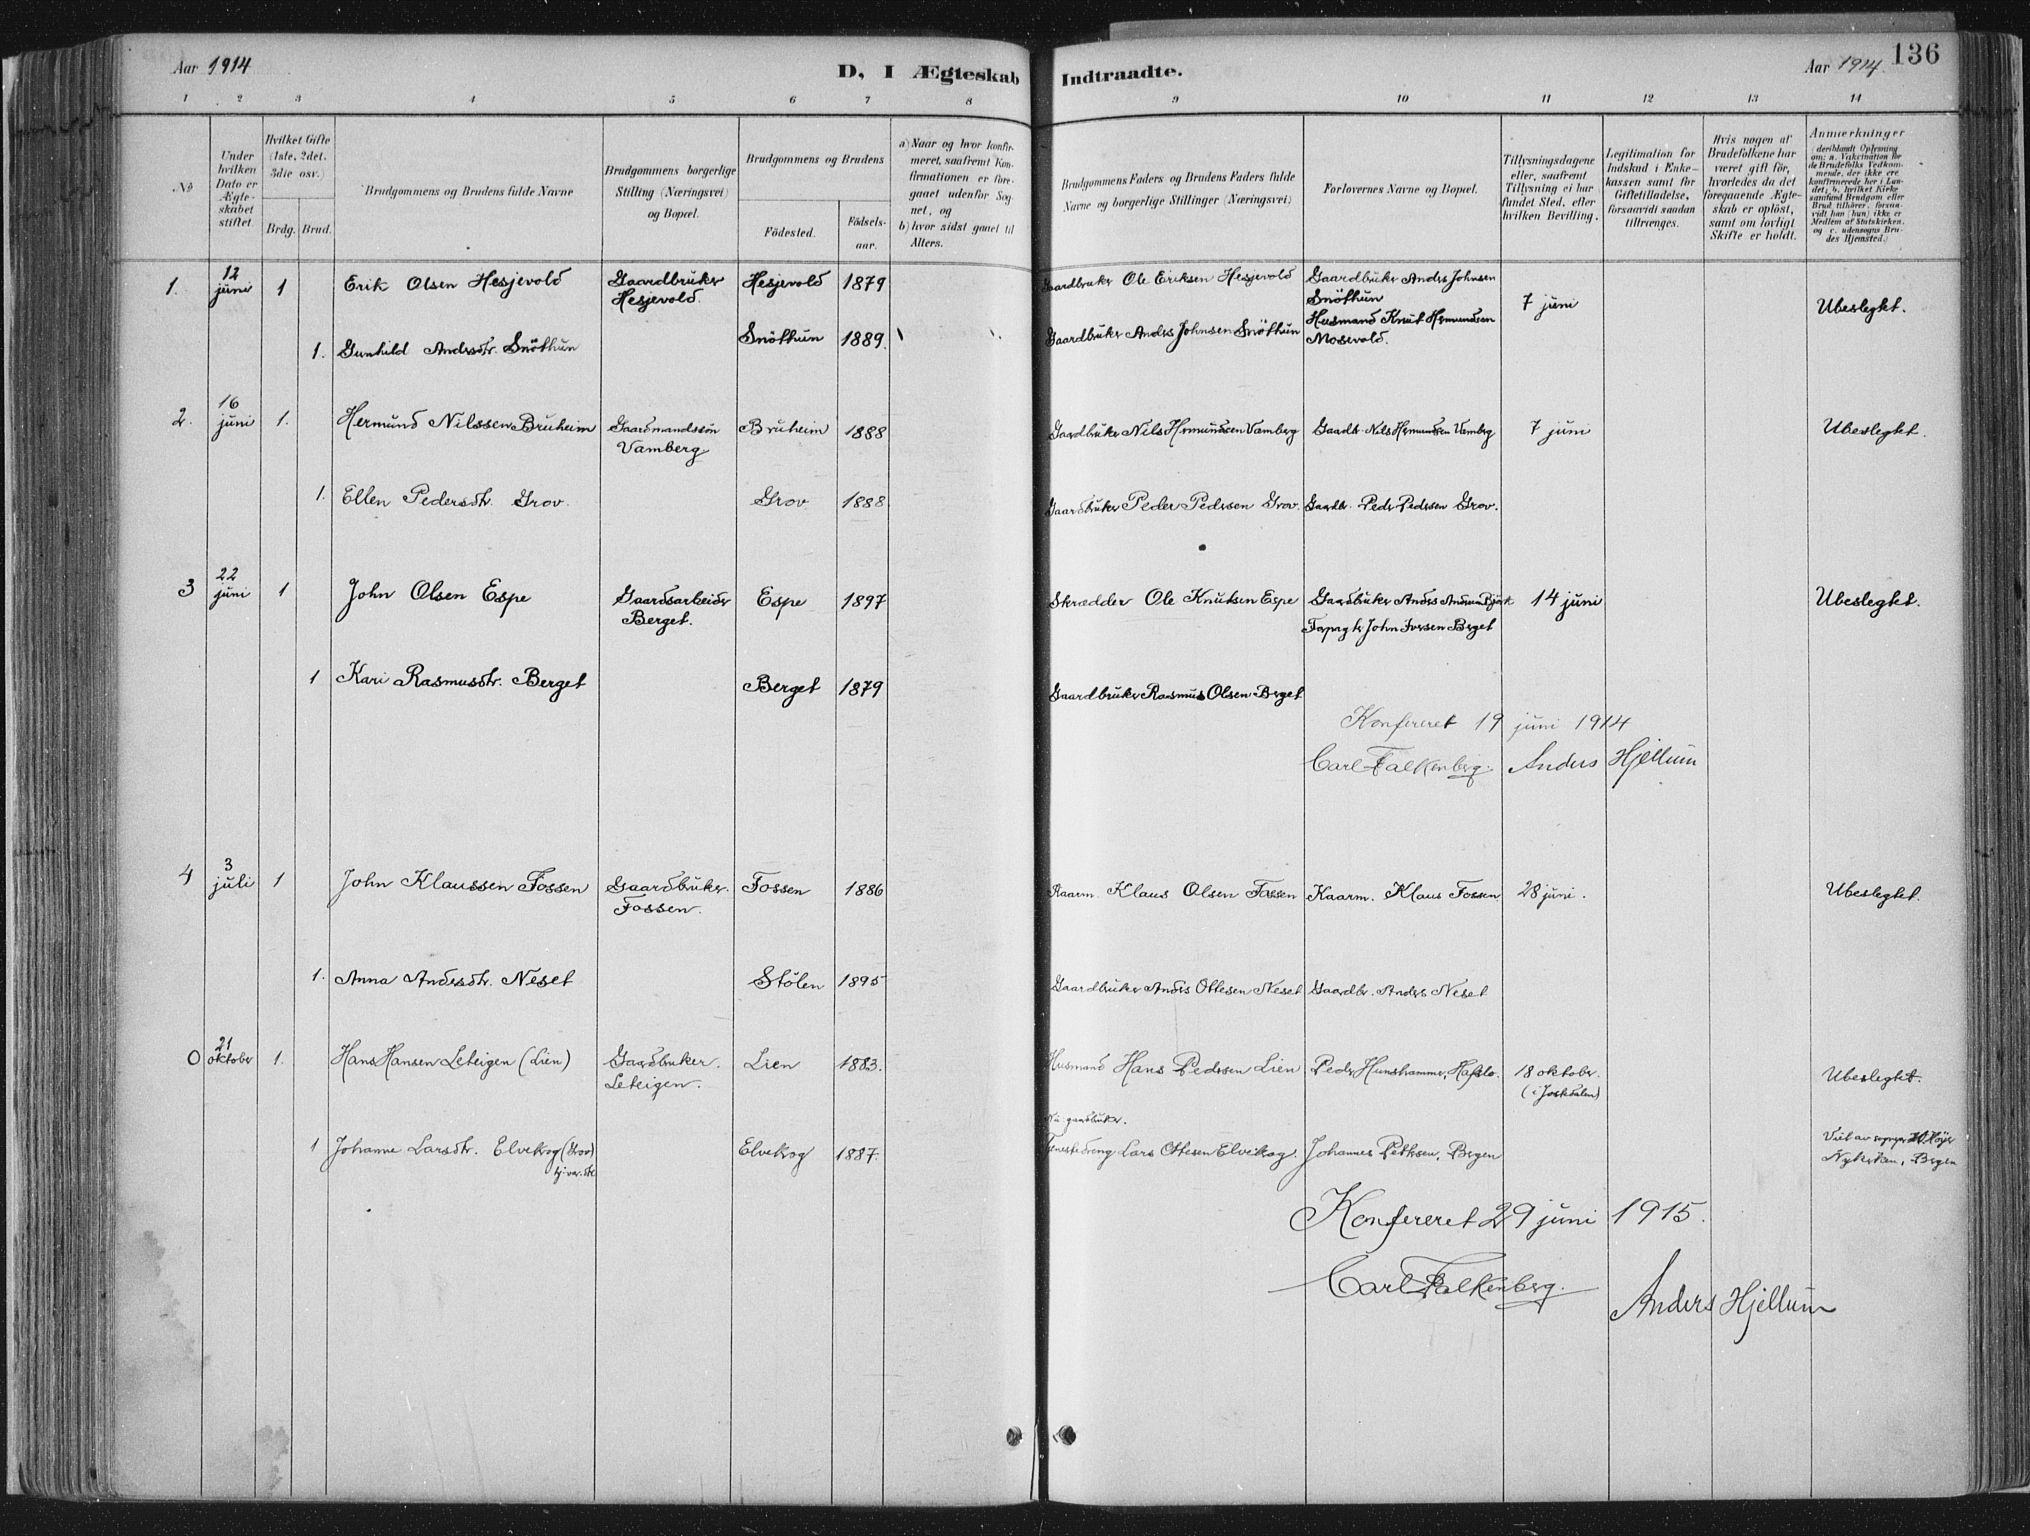 Aar 1914
D, I Ægteskab Indtraadte.
Aar 1914.
136
1 2 3 4 5 6 7 8 9 10 11 12 13 14
No
Under hvilken Dato er Ægteskabet stiftet
Hvilket Gifte (1ste, 2det, 3die osv.)
Brdg. Brud.
Brudgommens og Brudens fulde Navne
Brudgommens borgerlige Stilling (Næringsvei) og Bopæl.
Brudgommens og Brudens
Fødested.
Fødselsaar.
a) Naar og hvor konfirmeret, saafremt Konfirmationen er foregaaet udenfor Sognet, og
b) hvor sidst gaaet til Alters.
Brudgommens Faders og Brudens Faders fulde Navne og borgerlige Stillinger (Næringsvei)
Forlovernes Navne og Bopæl.
Tillysningsdagene eller, saafremt Tillysning ei har fundet Sted, efter hvilken Bevilling.
Legitimation for Indskud i Enkekassen samt for Giftetilladelse, forsaavidt saadan tiltrænges.
Hvis nogen af Brudefolkene har været gift før, hvorledes da det foregaaende Ægteskab er opløst, samt om lovligt Skifte er holdt.
Anmærkninger (deriblandt Oplysning om: a. Vakcination for de Brudefolks Vedkommende, der ikke ere konfirmerede her i Landet; b. hvilket Kirkesamfund Brudgom eller Brud tilhører, forsaavidt han (hun) ikke er Medlem af Statskirken, og c. udensogns Brudes Hjemsted.)
1. 12 juni 1 Erik Olsen Hesjevold Gaardbruker Hesjevold Hesjevold 1879 Gaardbruker Ole Eriksen Hesjevold Gaardbruker Anders Johnsen Snöthun 7 juni Ubeslegtet.
Husmand Knut Hermundsen Mosevold.
1. Gunhild Andersdtr. Snöthun Snöthun 1889. Gaardbruker Anders Johnsen Snöthun
2. 16 juni 1. Hermund Nilssen Bruheim Gaardmandssön Vamberg Bruheim 1888 Gaardbruker Nils Hermundsen Vamberg Gaardbr. Nils Hermundsen Vamberg 7 juni Ubeslegtet.
1. Ellen Pedersdtr. Grov. Grov 1888 Gaardbruker Peder Pedersen Grov. Gaardbr. Peder Pedersen Grov.
3 22 juni 1 John Olsen Espe Gaardsarbeider Berget. Espe 1897 Skrædder Ole Knutsen Espe Gaardbruker Anders Andersen 14 juni Ubeslegtet.
John Iversen Berget
1 Kari Rasmusdtr. Berget Berget 1879 Gaardbruker Rasmus Olsen Berget
Konfereret 19 juni 1914
Carl Falkenberg. Anders Hjellum
4 3 juli 1 John Klaussen Fossen Gaardbruker. Fossen. Fossen 1886 Kaarm. Klaus Olsen Fossen Kaarm. Klaus Fossen 28 juni. Ubeslegtet.
1. Anna Andersdtr. Neset Stölen 1895 Gaardbruker Anders Ottesen Neset Gaardbr. Anders Neset
0 21 oktober 1. Hans Hansen Leteigen (Lien) Gaardbruker. Leteigen. Lien 1883. Husmand Hans Pedersen Lien Peder Hunshammer, Hafslo. 18 oktober. (i Jostedalen) Ubeslegtet.
1 Johanne Larsdtr. Elvekrog (Grov) Elvekrog 1887. Nu gaardbruker. Tjenestedreng Lars Ottesen Elvekrog. Johannes Petersen, Bergen Viet av sognepr Nykirken, Bergen
Konfereret 29 juni 1915.
Carl Falkenberg. Anders Hjellum